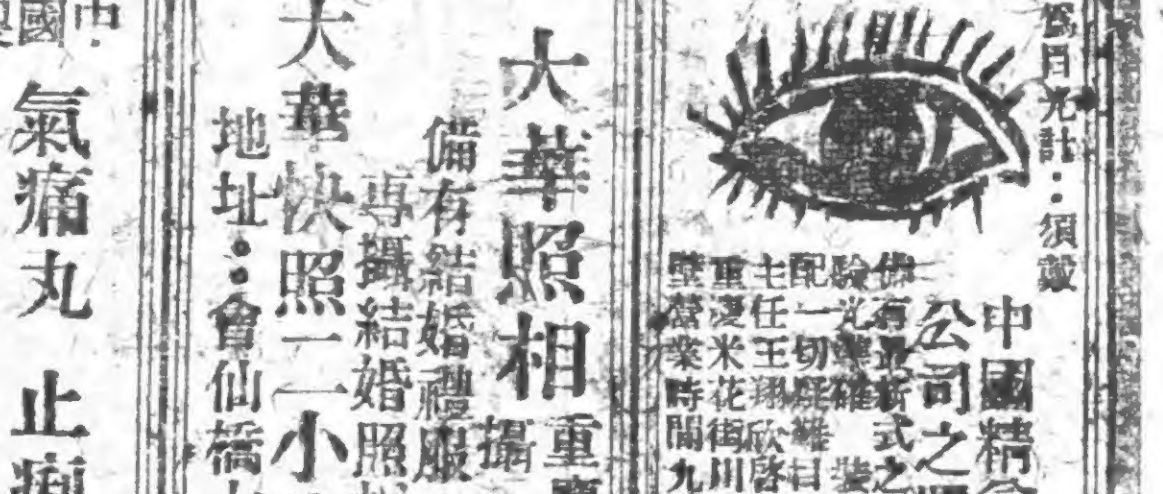 爲目光計：須戴
中國精
公司之
備有最新式之
驗光準確 裝
配一切 雜目
主任王翔欣啓
重慶米花街川
壁營業時間九
大華照相
重慶
攝
備有結婚禮服
專攝結婚照
大華快照一二小
地址：會仙橋
中國
氣痛丸 止痢